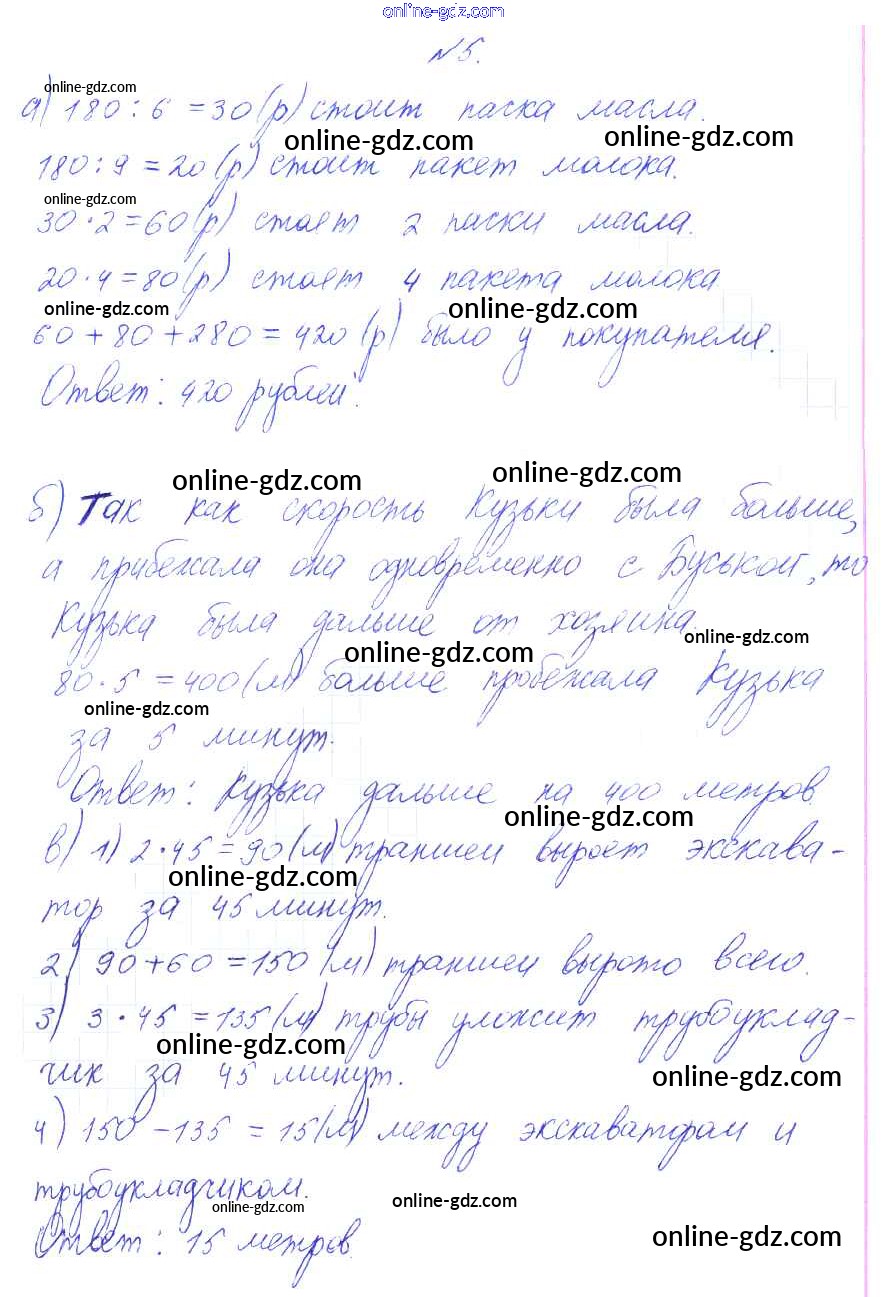 online-gdz.com
№5.
online-gdz.com
а) 180 : 6 = 30 (р) стоит паска масла.
online-gdz.com
online-gdz.com
180 : 9 = 20 (р) стоит пакет молока.
online-gdz.com
30 · 2 = 60 (р) стоят 2 паски масла.
20 · 4 = 80 (р) стоят 4 пакета молока
online-gdz.com
online-gdz.com
60 + 80 + 280 = 420 (р) было у покупателя.
Ответ: 420 рублей.
online-gdz.com
online-gdz.com
б) Так как скорость Кузьки была больше,
а прибежала она одновременно с Буськой, то
Кузька была дальше от хозяина.
online-gdz.com
online-gdz.com
80 · 5 = 400 (м) больше пробежала Кузька
online-gdz.com
за 5 минут.
Ответ: Кузька дальше на 400 метров
online-gdz.com
в) 1) 2 · 45 = 90 (м) траншеи выроет экскава-
online-gdz.com
тор за 45 минут.
2) 90 + 60 = 150 (м) траншеи вырыто всего.
3) 3 · 45 = 135 (м) трубы уложит трубоуклад-
online-gdz.com
чик за 45 минут.
online-gdz.com
4) 150 - 135 = 15 (м) между экскаватором и
трубоукладчиком.
online-gdz.com
online-gdz.com
Ответ: 15 метров.
online-gdz.com